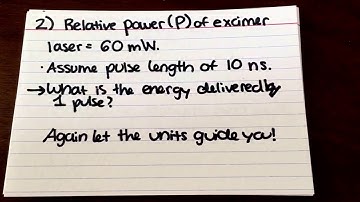 2) Relative power (P) of excimer
laser = 60 mW.
· Assume pulse length of 10 ns.
→ What is the energy delivered by
1 pulse?
Again let the units guide you!